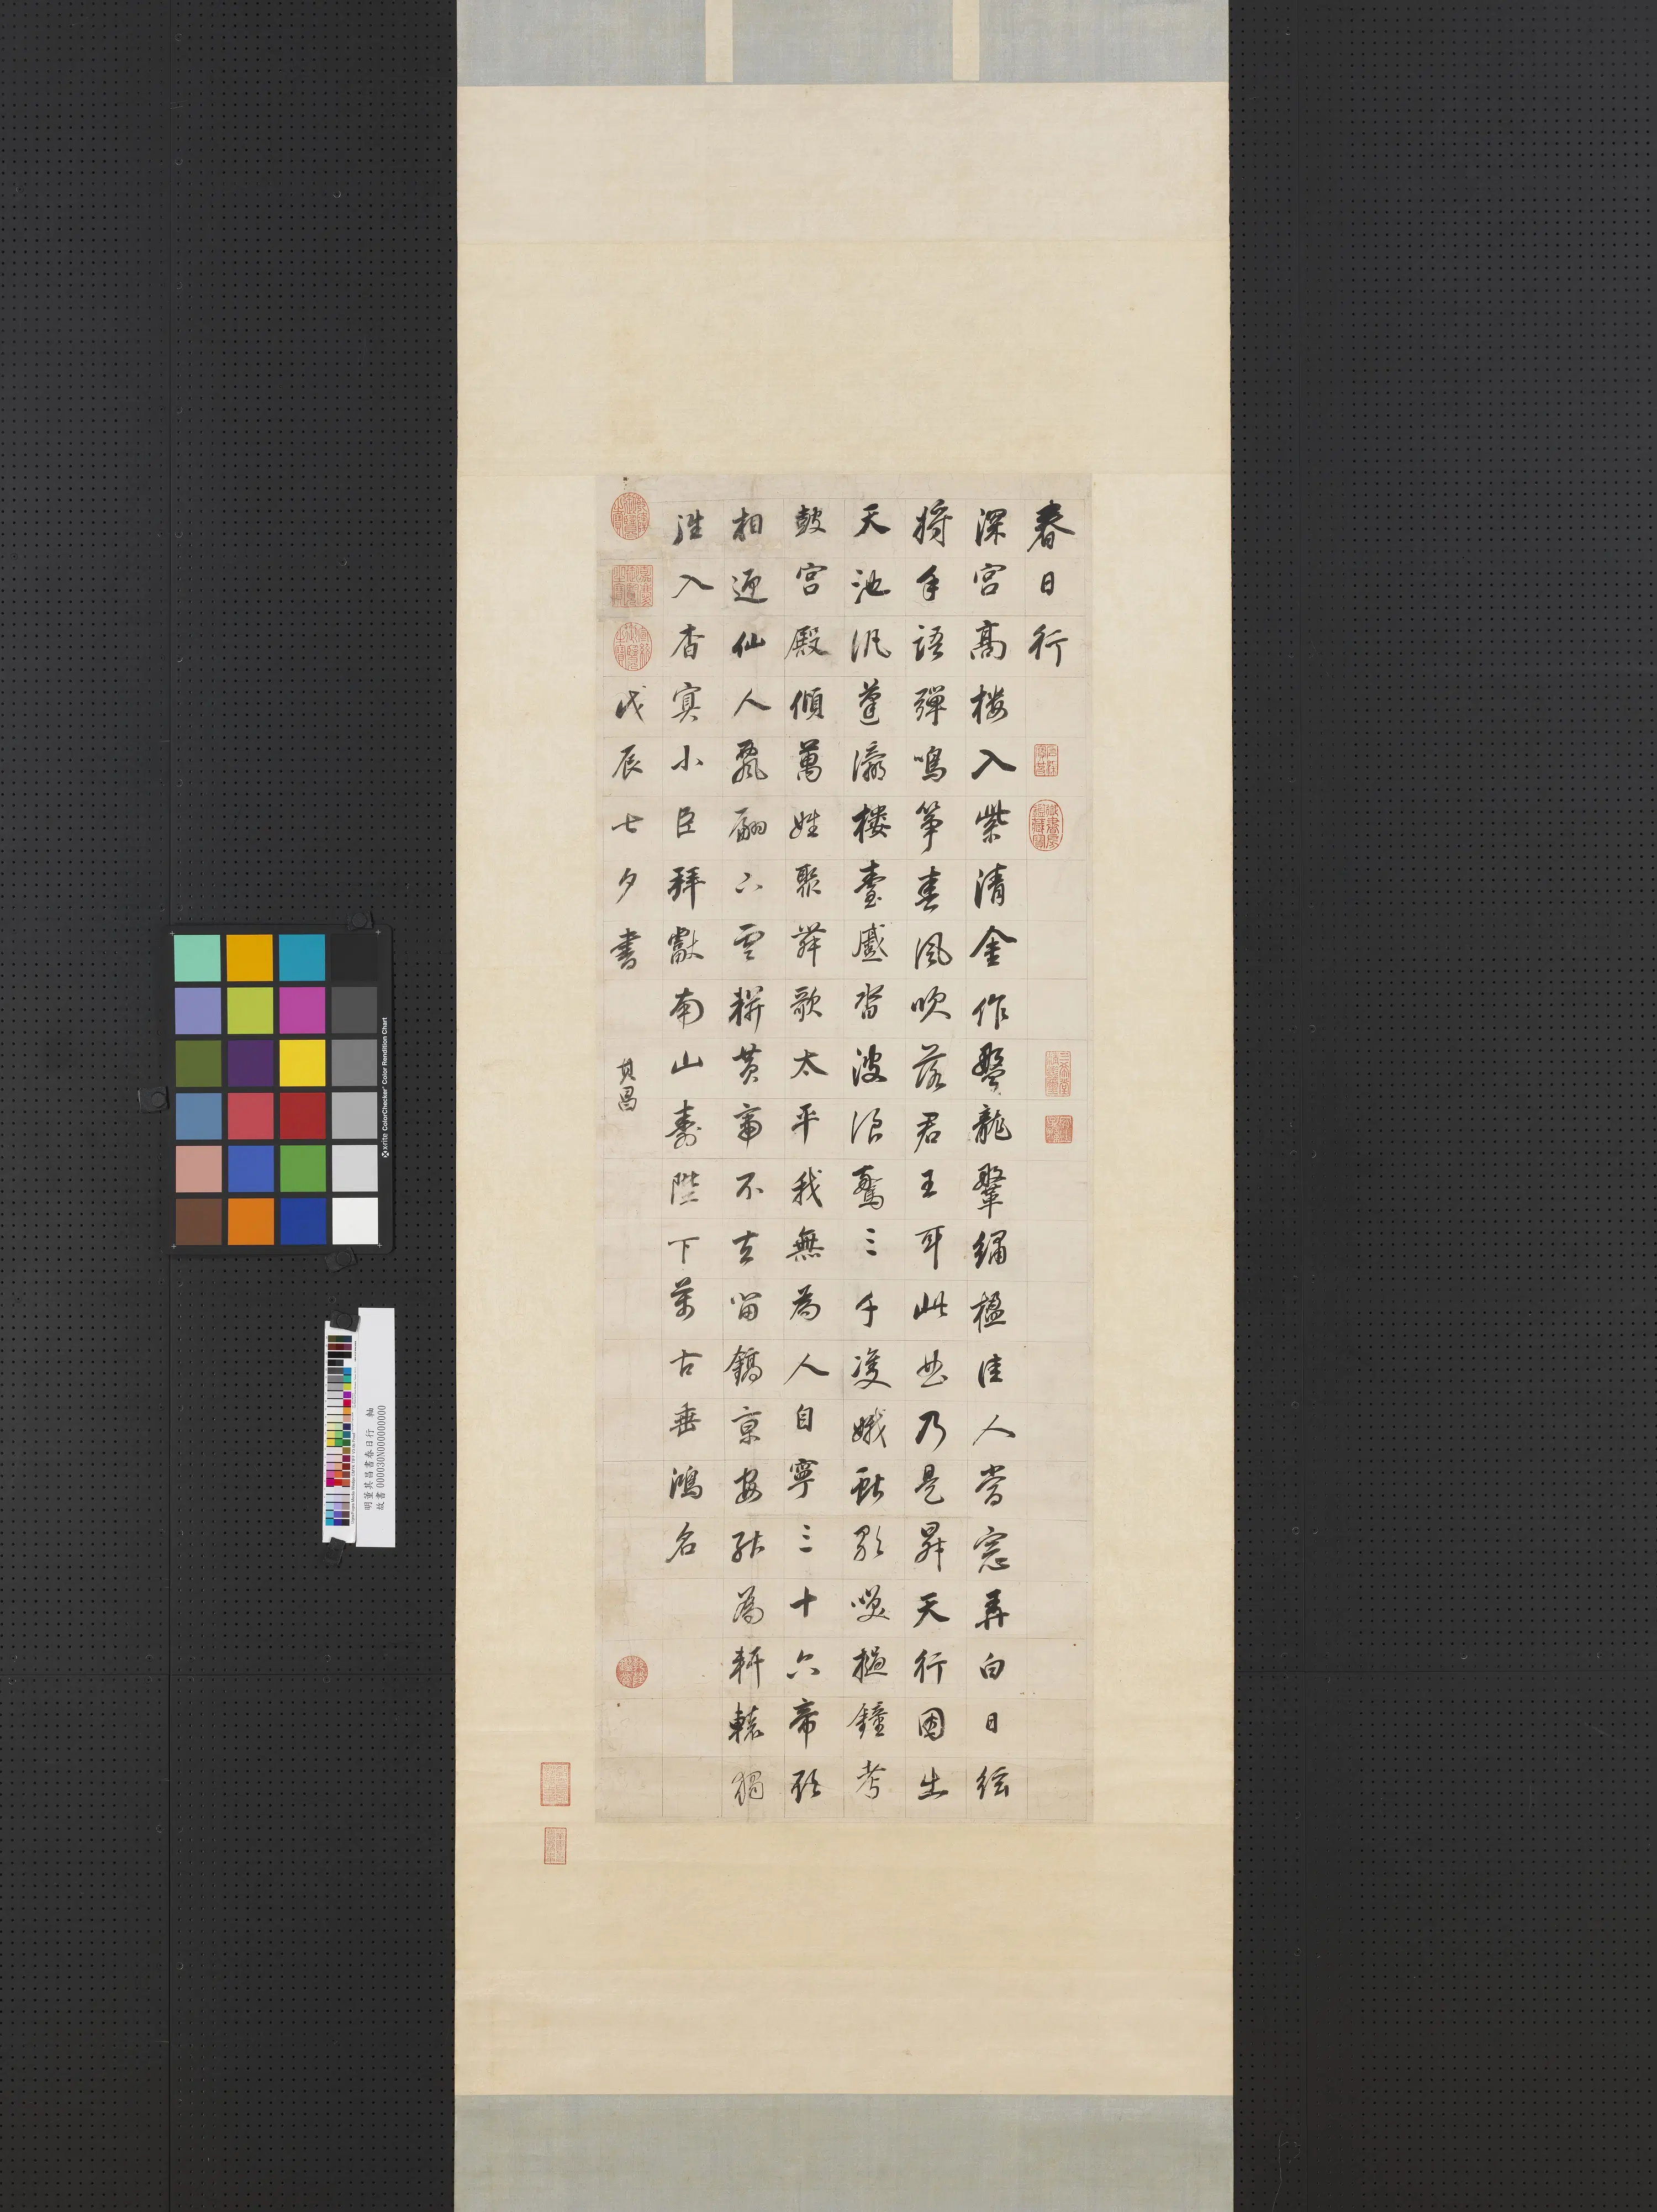 春日行
深宮高楼入紫清金作龍鞶繡楹佳人當窓弄白日絃
將手語彈鳴筝春風吹落君王耳此曲乃是昇天行因出
天池汎蓬瀛樓臺蹙沓波浪驚三千雙娥獻歌笑撾鐘考
鼓宮殿傾萬姓聚舞歌太平我無為人自寧三十六帝欲
相迎仙人飄翩下雲軿黃帝不去留鎬京安能為軒轅獨
往入杳冥小臣拜獻南山壽陛下萬古垂鴻名
戊辰七夕書
其昌
x·rite ColorChecker® Color Rendition Chart
明董其昌書春日行 軸
故書000030N000000000